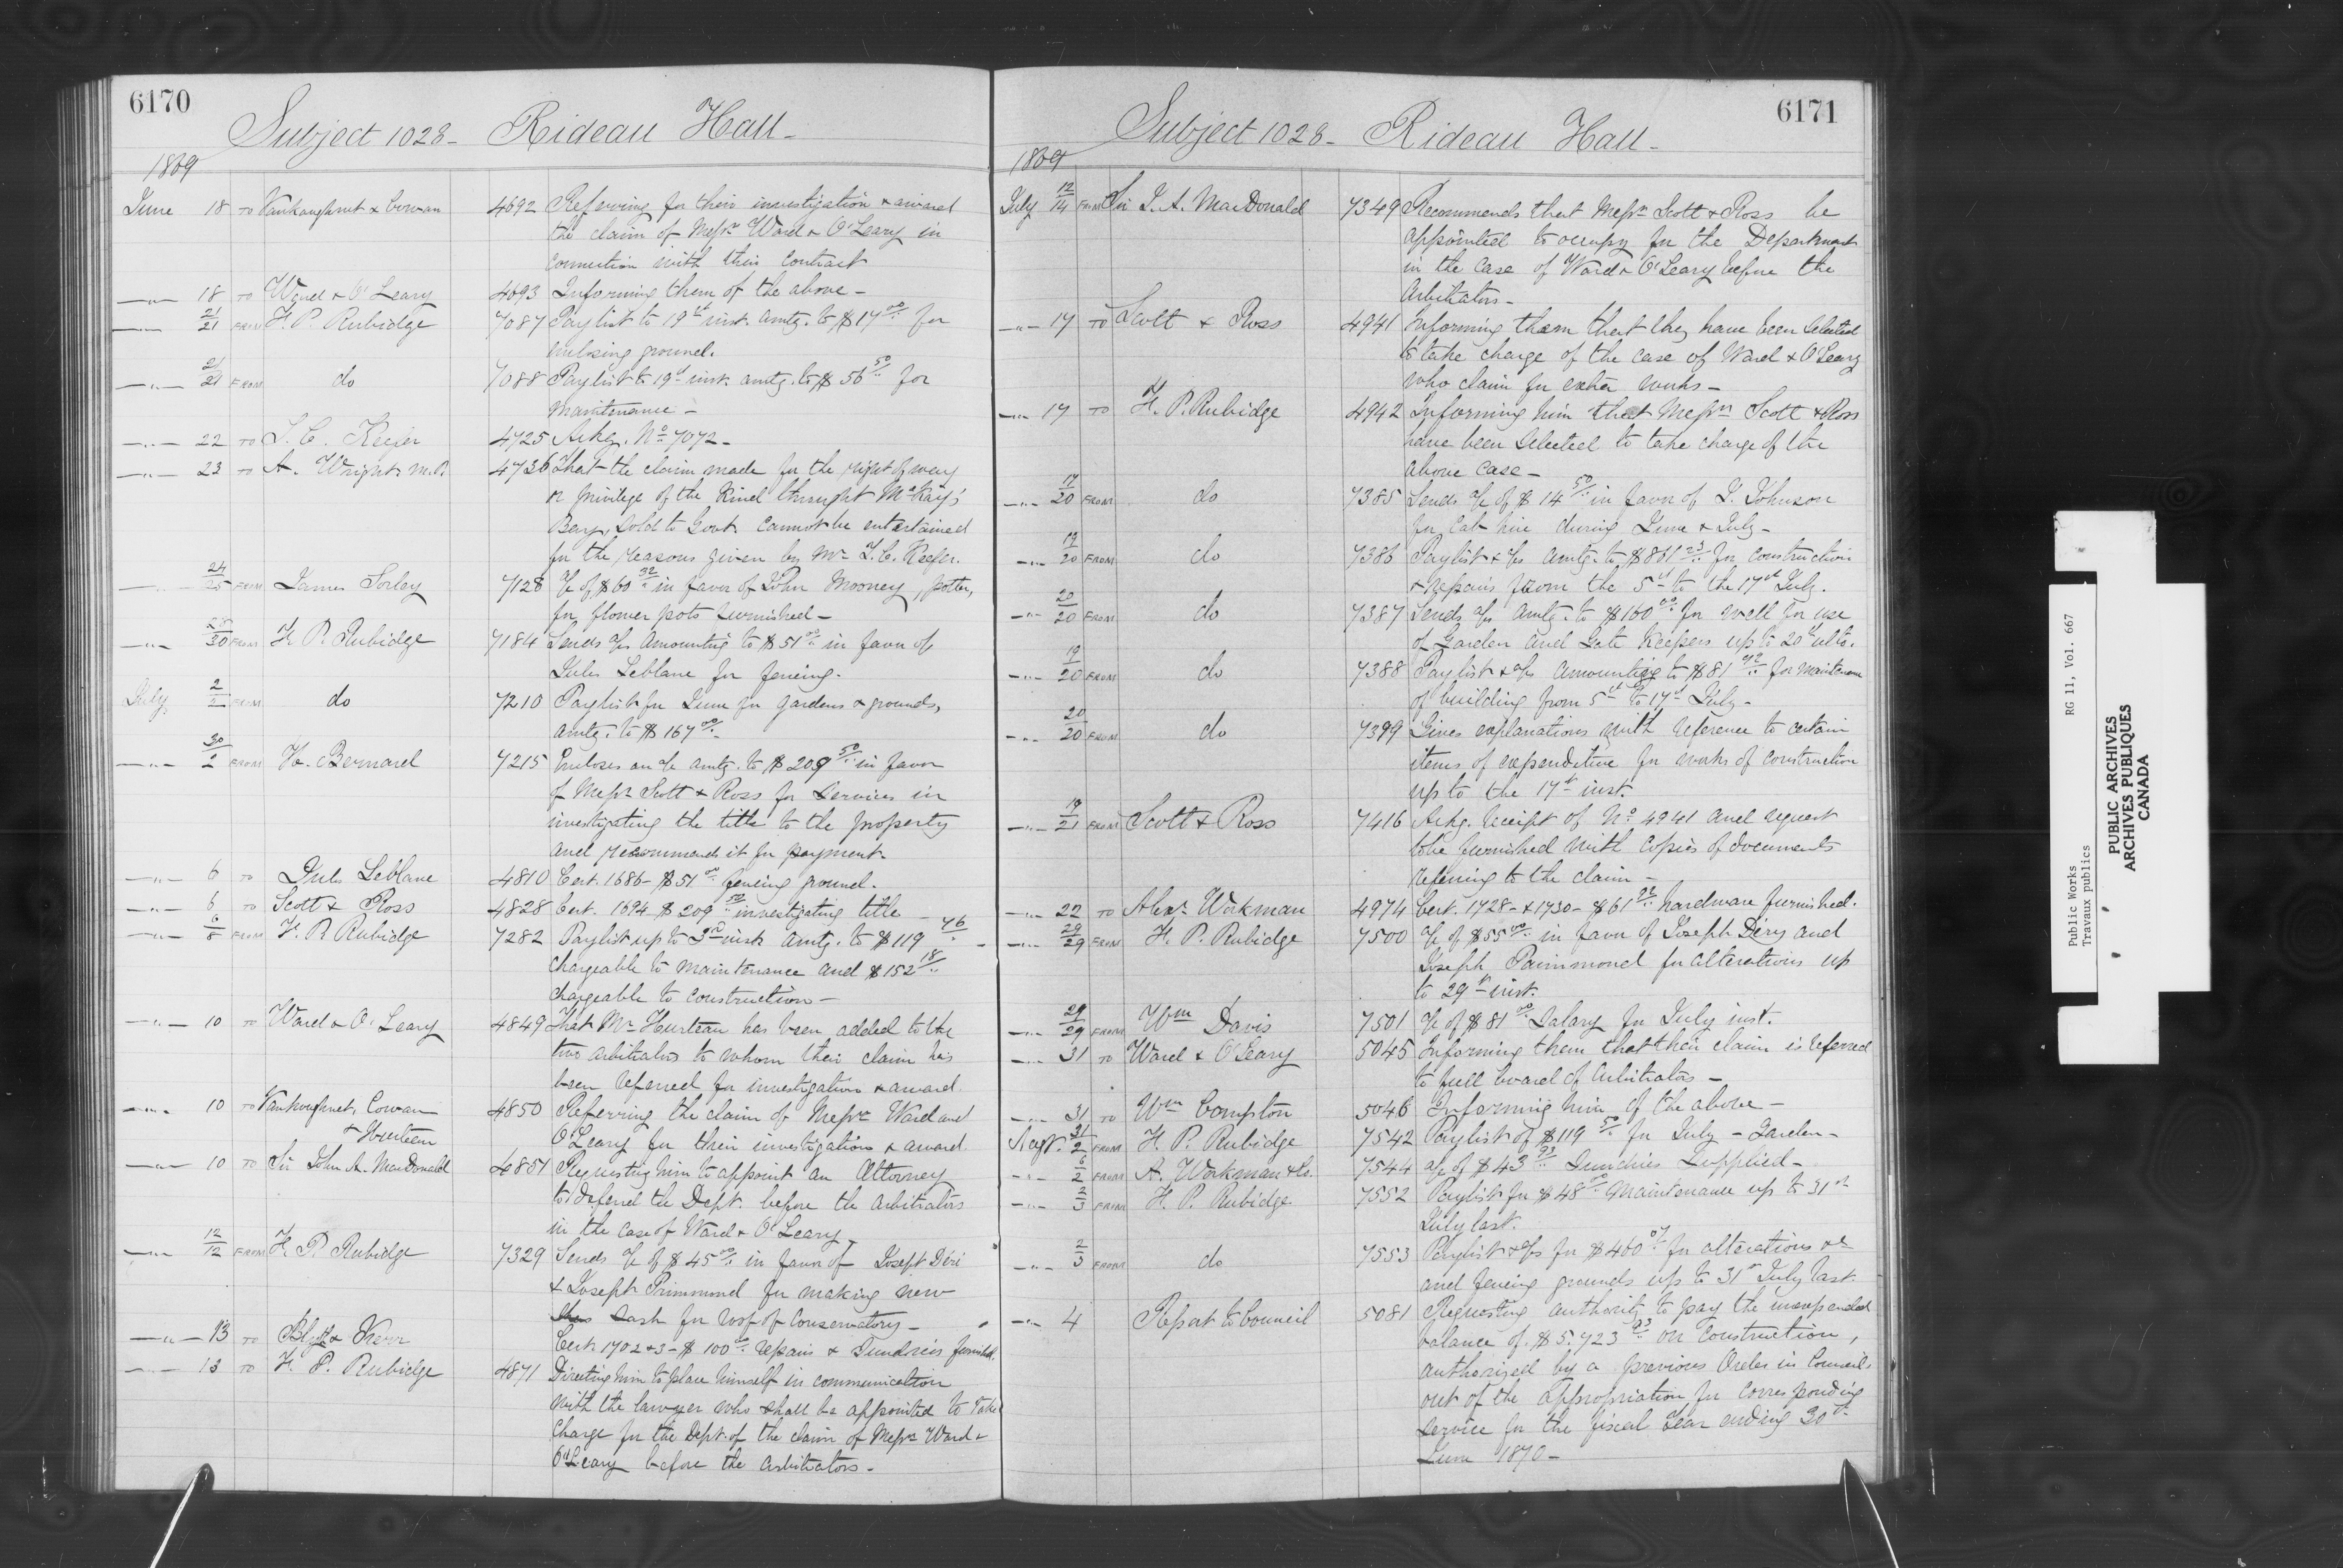 6170
Subject 1028 - Rideau Hall -
1869
June 18 TO Vankoughnet & Cowan 4692 Referring for their investigation & award
the claim of Messrs Ward & O'Leary in
connection with their contract
—"— 18 TO Ward & O'Leary 4693 Informing them of the above -
—"— 21/21 FROM F. P. Rubidge 7087 Paylist to 19th inst. amtg. to $17.00 for
enclosing ground.
—"— 21/21 FROM do 7088 Paylist to 19th inst. amtg. to $56.50 for
Maintenance -
—"— 22 TO T. C. Keefer 4725 Ackg. No 7072 -
—"— 23 TO A. Wright M.P. 4736 That the claim made for the right of way
or privilege of the Kind throught McKay's
Bay, sold to Govt. cannot be entertained
for the reasons given by Mr T. C. Keefer.
—"— 24/25 FROM James Sorley 7128 a/c of $60.32 in favor of John Mooney, potter,
for flower pots furnished -
—"— /30 FROM F. P. Rubidge 7184 Sends a/cs amounting to $51.00 in favor of
Jules Leblanc for fencing -
July 2/2 FROM do 7210 Paylist for June for gardens & grounds,
amtg. to $167.00 -
—"— 30/2 FROM H. Bernard 7215 Encloses an a/c amtg. to $209.50 in favor
of Messrs Scott & Ross for services in
investigating the title to the property
and recommends it for payment.
—"— 6 TO Jules Leblanc 4810 Cert. 1686 - $51.00 fencing ground.
—"— 6 TO Scott & Ross 4828 Cert. 1694 $209.50 investigating title -
—"— 6/8 FROM F. P. Rubidge 7282 Paylist up to 3rd inst. amtg. to $119.76 -
chargeable to maintenance and $152.18
chargeable to construction -
—"— 10 TO Ward & O'Leary 4849 That Mr Hurteau has been added to the
two arbitrators to whom their claim has
been referred for investigation & award.
—"— 10 TO Vankoughnet, Cowan 4850 Referring the claim of Messrs Ward and
& Hurteau O'Leary for their investigation & award.
—"— 10 TO Sir John A. MacDonald 4851 Requesting him to appoint an Attorney
to defend the Dept. before the arbitrators
in the case of Ward & O'Leary -
—"— 12/12 FROM F. P. Rubidge 7329 Sends a/c of $45.00 in favor of Joseph Déri
& Joseph Primmond for making new
sash for roof of conservatory -
—"— 13 TO Blyth & Kerr Cert. 1702 & 3 - $100.00 repairs & sundries furnished.
—"— 13 TO F. P. Rubidge 4871 Directing him to place himself in communication
with the lawyer who shall be appointed to take
charge for the Dept. of the claim of Messrs Ward &
O'Leary before the arbitrators -
6171
Subject 1028 - Rideau Hall -
1869
July 12/14 FROM Sir J. A. MacDonald 7349 Recommends that Messrs Scott & Ross be
appointed to occupy for the Department
in the case of Ward & O'Leary before the
Arbitrators -
—"— 17 TO Scott & Ross 4941 Informing them that they have been selected
to take charge of the case of Ward & O'Leary
who claim for extra works -
—"— 17 TO F. P. Rubidge 4942 Informing him that Messrs Scott & Ross
have been selected to take charge of the
above case -
—"— 17/20 FROM do 7385 Sends a/c of $14.50 in favor of J. Johnson
for cab hire during June & July -
—"— 19/20 FROM do 7386 Paylist & a/cs amtg. to $861.23 for construction
& repairs from the 5th to the 17th July.
—"— 20/20 FROM do 7387 Sends a/cs amtg. to $160.00 for well for use
of Garden and Gate Keepers up to 20th ulto.
—"— 19/20 FROM do 7388 Paylist & a/cs amounting to $81.92 for maintenance
of building from 5th to 17th July -
—"— 20/20 FROM do 7399 Gives explanations with reference to certain
items of expenditure for works of construction
up to the 17th inst.
—"— 19/21 FROM Scott & Ross 7416 Ackg. receipt of No 4941 and request
to be furnished with copies of documents
referring to the claim -
—"— 22 TO Alexr Workman 4974 Cert. 1728 - & 1730 - $61.22 hardware furnished.
—"— 29/29 FROM F. P. Rubidge 7500 a/c of $55.00 in favor of Joseph Déry and
Joseph Paimmond for alterations up
to 29th inst.
—"— 29/29 FROM Wm Davis 7501 a/c of $81.00 Salary for July inst.
—"— 31 TO Ward & O'Leary 5045 Informing them that their claim is referred
to full board of arbitrators -
—"— 31 TO Wm Compton 5046 Informing him of the above -
Augt. 31/2 FROM F. P. Rubidge 7542 Paylist of $119.50 for July - Garden -
—"— 6/2 FROM A. Workman & Co. 7544 a/c of $43.93 Sundries Supplied -
—"— 2/3 FROM F. P. Rubidge 7552 Paylist for $48.00 Maintenance up to 31st
July last.
—"— 2/3 FROM do 7553 Paylist & a/cs for $460.07 for alterations &c
and fencing grounds up to 31st July last.
—"— 4 Report to Council 5081 Requesting authority to pay the unexpended
balance of $5.723.93 on construction,
authorized by a previous Order in Council,
out of the appropriation for corresponding
service for the fiscal Year ending 30th
June 1870 -
Public Works
Travaux publics
RG 11, Vol. 667
PUBLIC ARCHIVES
ARCHIVES PUBLIQUES
CANADA